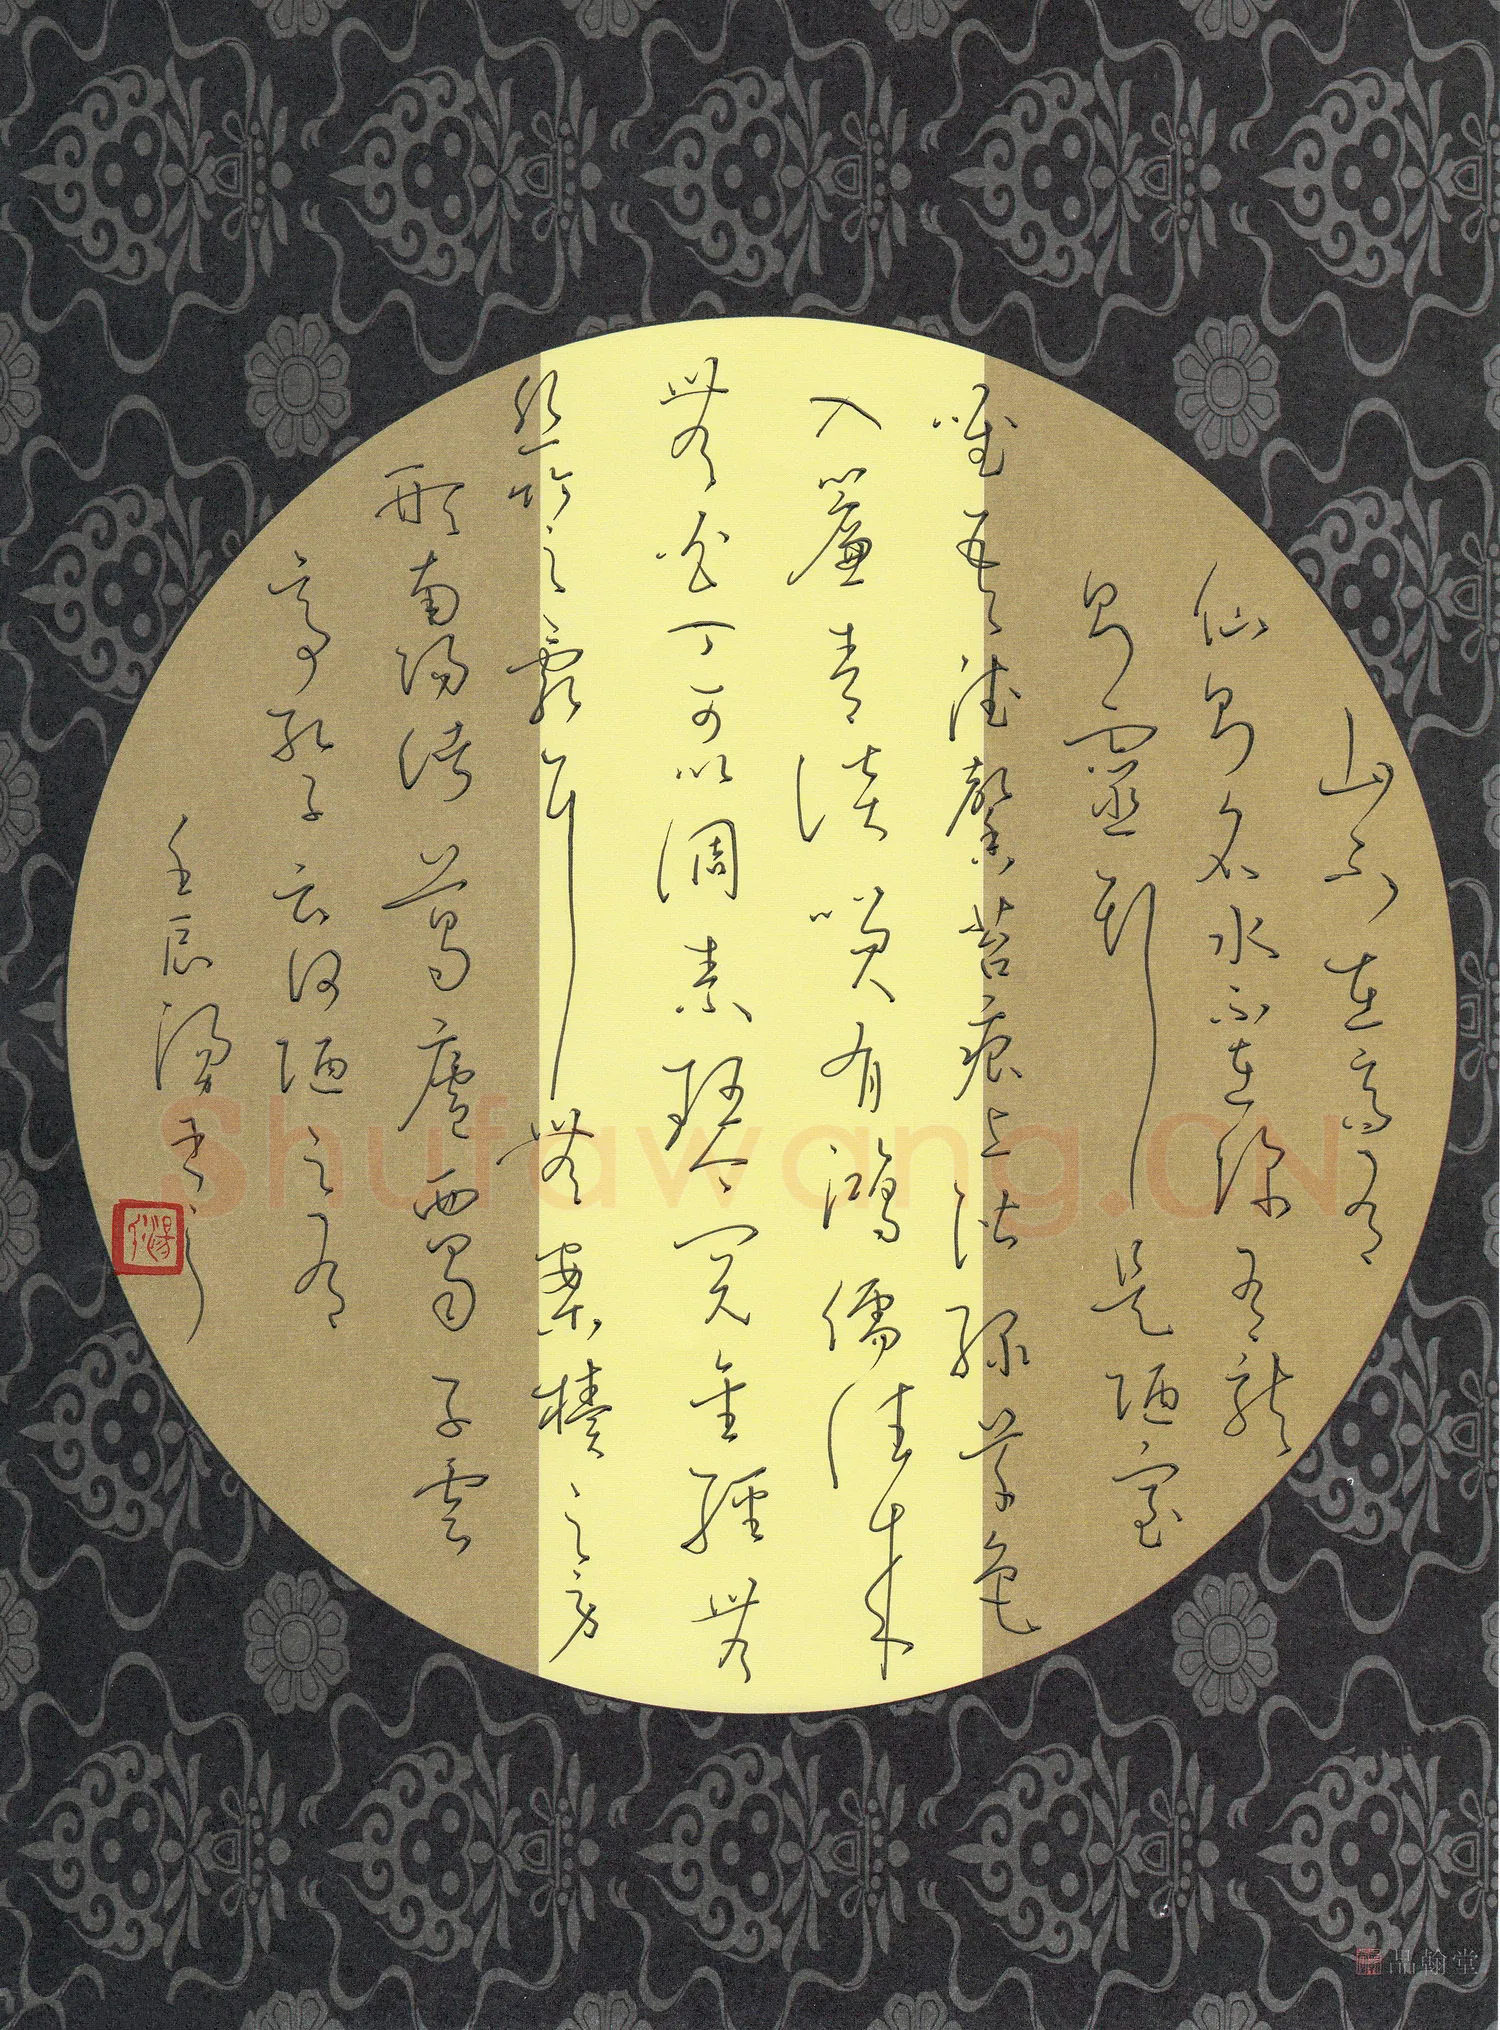 山不在高有
仙則名水不在深有龍
則靈斯是陋室
唯吾德馨苔痕上階綠草色
入簾青談笑有鴻儒往來
無白丁可以調素琴閱金經無
絲竹之亂耳無案牘之勞
形南陽諸葛廬西蜀子雲
亭孔子云何陋之有
壬辰
Shufawang.CN
品翰堂